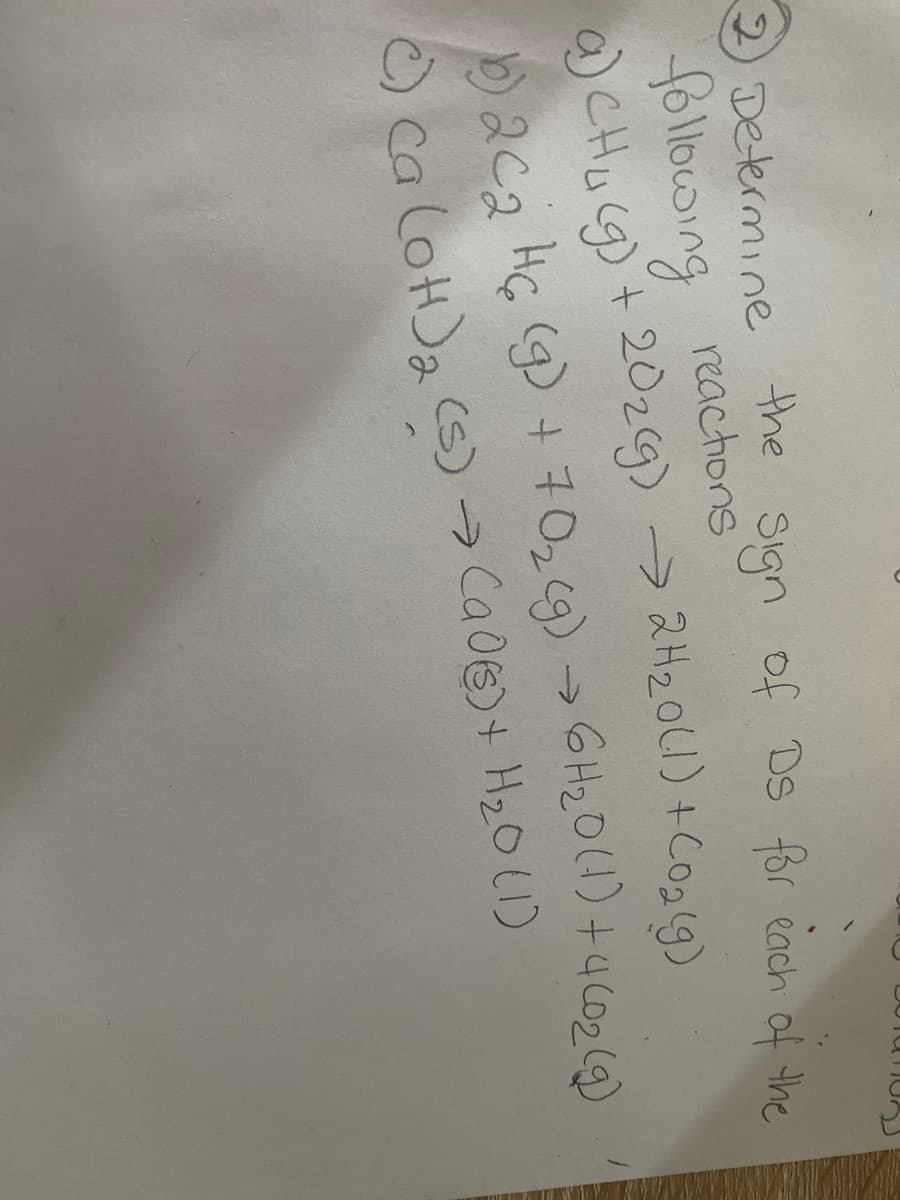 ② Determine the sign of DS for each of the
following reactions
a) CH4 (g) + 2O2(g) → 2H2O(l) + CO2(g)
b) 2C2 H6 (g) + 7O2 (g) → 6H2O(l) + 4CO2(g)
c) Ca(OH)2 (s) → CaO(s) + H2O(l)